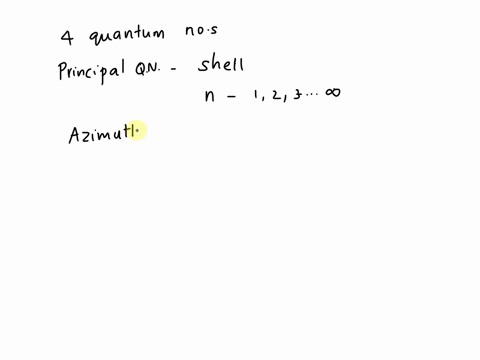 4 quantum no.s
Principal Q.N. - shell
n - 1, 2, 3 ... ∞
Azimuth